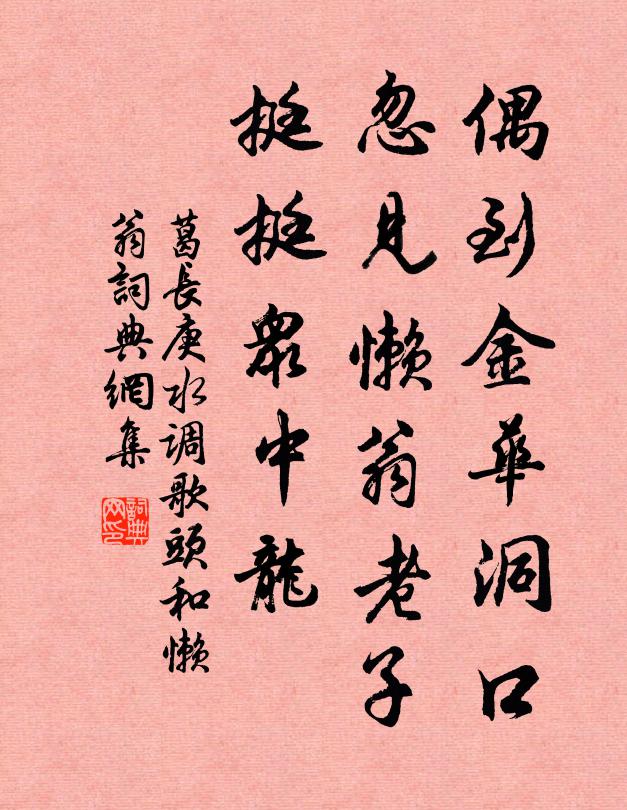 偶到金華洞口
忽見懶翁老子
挺挺眾中龍
葛長庚水调歌頭和懶
翁詞典網集
詞典网印